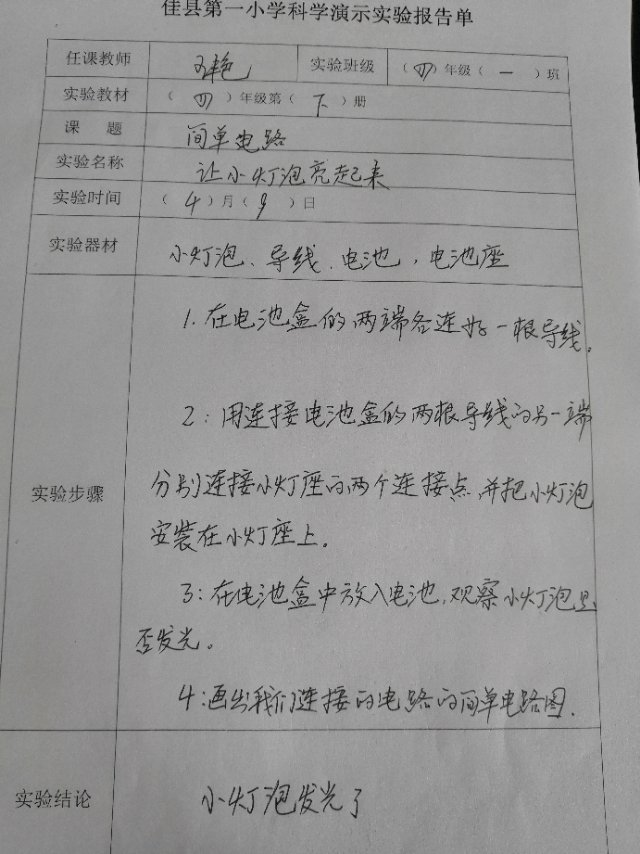 佳县第一小学科学演示实验报告单
任课教师 艳 实验班级 （四）年级（一）班
实验教材 （四）年级第（下）册
课 题 简单电路
实验名称 让小灯泡亮起来
实验时间 （4）月（9）日
实验器材 小灯泡、导线、电池，电池座
1.在电池盒的两端各连好一根导线。
2：用连接电池盒的两根导线的另一端
实验步骤 分别连接小灯座的两个连接点，并把小灯泡
安装在小灯座上。
3：在电池盒中放入电池，观察小灯泡是
否发光。
4：画出我们连接的电路的简单电路图.
实验结论 小灯泡发光了